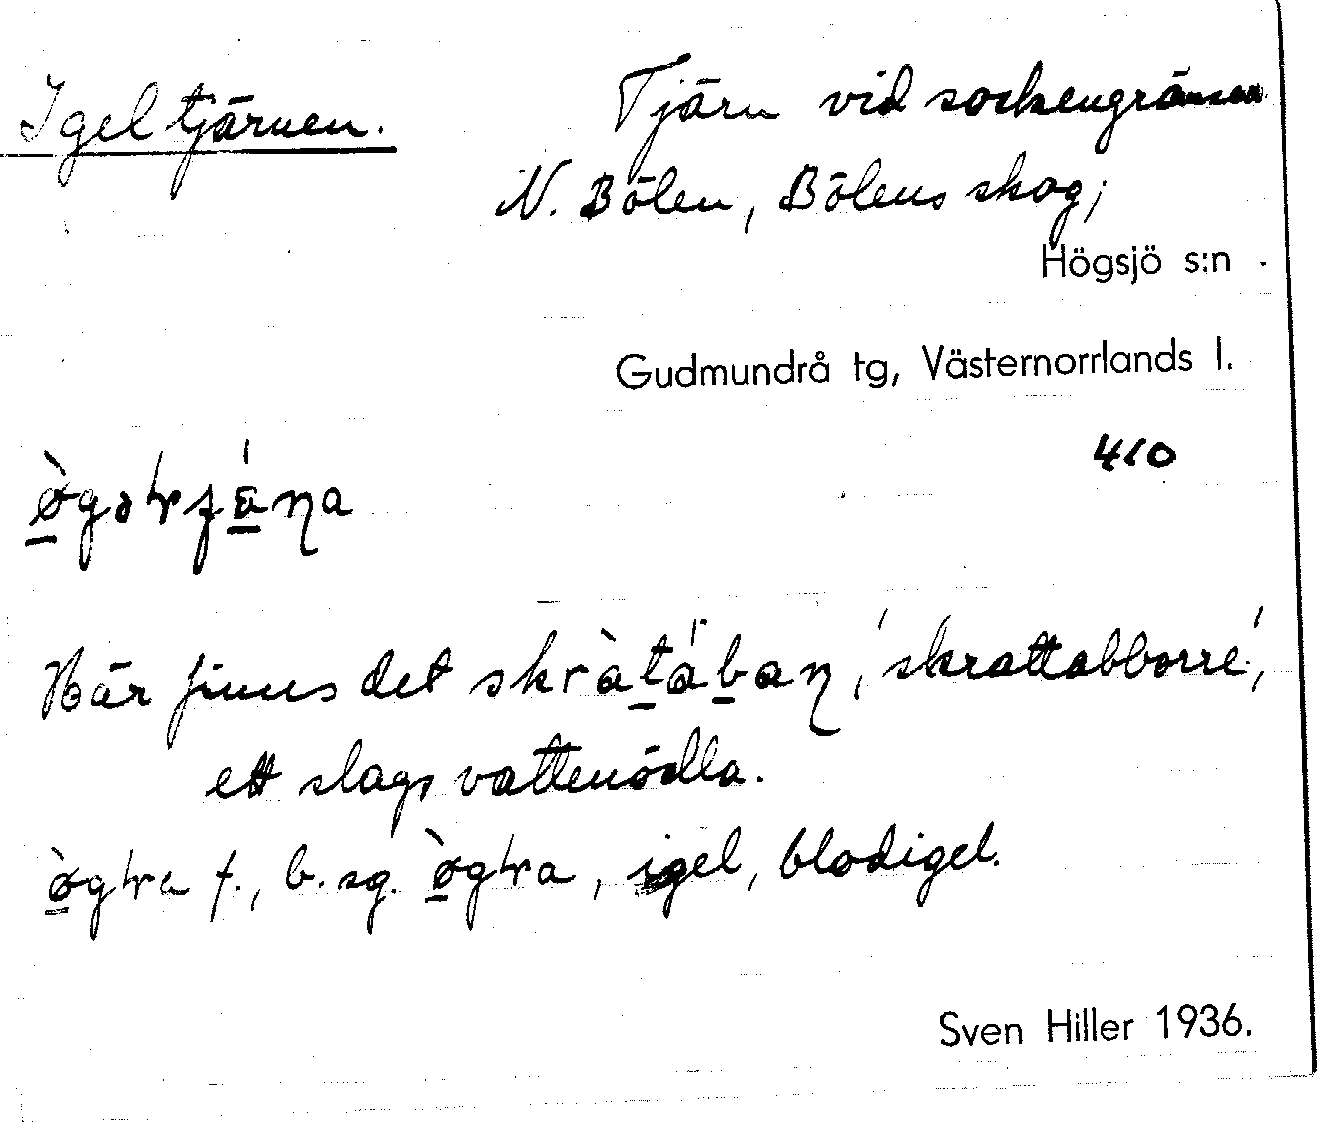 Igeltjärnen.
Tjärn vid sockengränsen
N. Bölen, Bölens skog;
Högsjö s:n
Gudmundrå tg, Västernorrlands l.
410
Här finns det skràtába&#x014B;, 'skrattabborre',
ett slags vattenödla.
f., b. sg. , igel, blodigel.
Sven Hiller 1936.